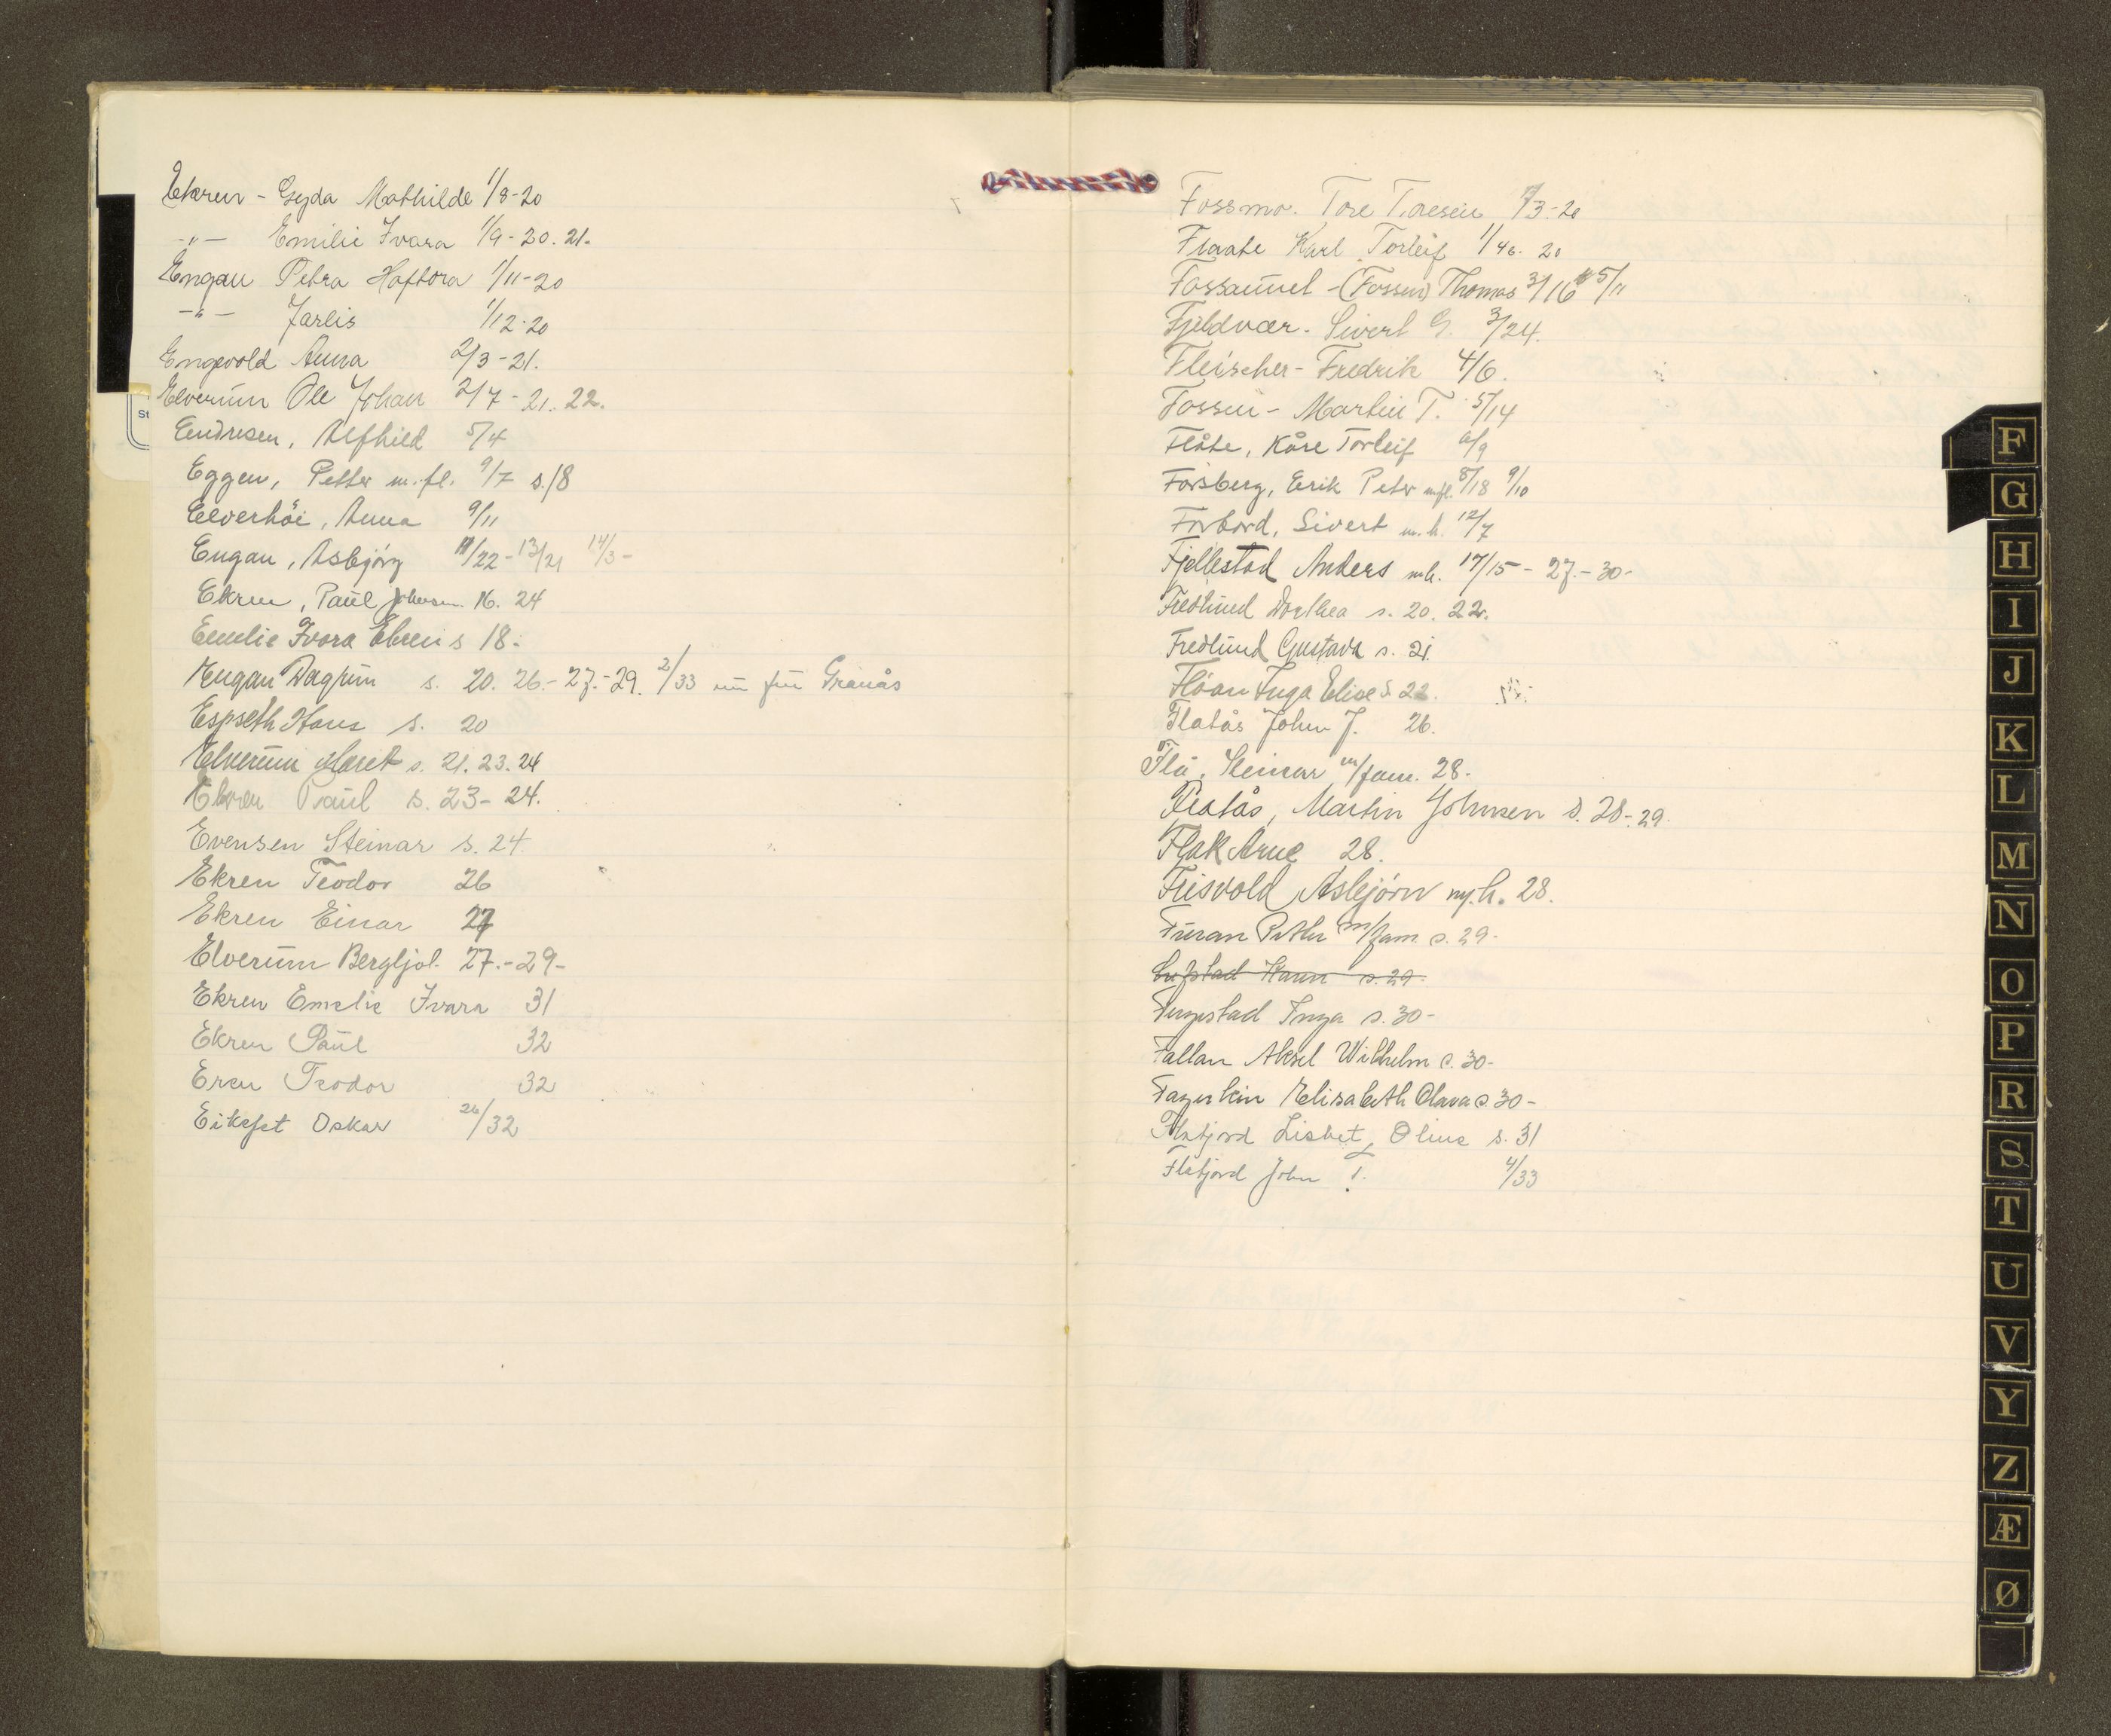 Ekren - Gyda Mathilde 1/8-20
-"- Emilie Ivara 1/9-20. 21.
Engan Petra Haftora 1/11-20
-"- Jarlis 1/12-20
Engevold Anna 2/3-21.
Elverum Ole Johan 2/7-21. 22.
Endresen, Alfhild 5/4
Eggen, Petter m.fl. 9/7 s./8
Elverhöi, Anna 9/11
Engan, Asbjörg 11/22-13/21 14/3-
Ekren, Paul Johnsen. 16. 24
Emelie Ivara Ekren s 18.
Engan Dagrun s. 20. 26.-27.-29. 2/33 Granås
Espseth Hans s. 20
Elverum Maret s. 21. 23. 24
Ekren Paul s. 23-24.
Evensen Steinar s. 24
Ekren Teodor 26
Ekren Einar 27
Elverum Bergljot 27.-29-
Ekren Emelie Ivara 31
Ekren Paul 32
Eren Teodor 32
Eikeset Oskar 26/32
Fossmo. Tore Toresen 1/3-20
Flaate Karl Torleif 1/46. 20
Fossaunet - (Fossen) Thomas 3/16 5/11
Fjeldvær. Sivert G. 3/24.
Fleischer - Fredrik 4/6.
Fossen - Martin T. 5/14
Flåte, Kåre Torleif 6/9
Forsberg, Erik Peter m.fl. 8/18 9/10
Forbord, Sivert m.h. 12/7
Fjellestad Anders m.h. 17/15-27.-30-
Fredlund Dorthea s. 20. 22.
Fredlund Gustava s. 21.
Flöan Inga Elise s 22.
Flatås John J. 26.
Flå, Steinar m/fam. 28.
Flatås, Martin Johnsen s. 28-29.
Flak Arne 28.
Frisvold Asbjörn m.h. 28.
Furan Petter m/fam. s. 29-
s. 29-
Inga s. 30-
Fallan Aksel Wilhelm s. 30-
Elisabeth Olava s. 30-
Flatjord Lisbet Oline s. 31
Flatjord John T. 4/33
F
G
H
I
J
K
L
M
N
O
P
R
S
T
U
V
Y
Z
Æ
Ø